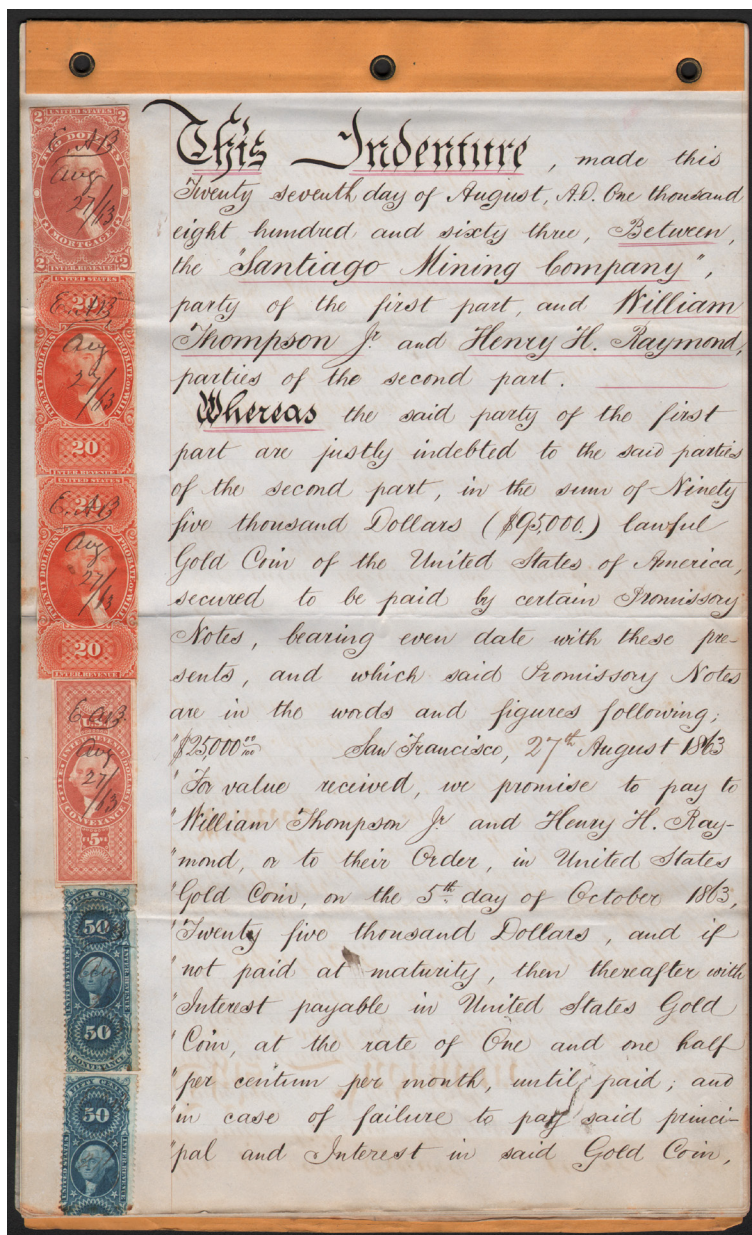 This Indenture, made this
Twenty seventh day of August, A.D. One thousand
eight hundred and sixty three, Between,
the "Santiago Mining Company",
party of the first part, and William
Thompson Jr. and Henry H. Raymond,
parties of the second part.
Whereas the said party of the first
part are justly indebted to the said parties
of the second part, in the sum of Ninety
five thousand Dollars ($95,000.) lawful
Gold Coin of the United States of America,
secured to be paid by certain Promissory
Notes, bearing even date with these pre-
sents, and which said Promissory Notes
are in the words and figures following;
"$25,000 00/100 San Francisco, 27th August 1863
"For value received, we promise to pay to
"William Thompson Jr. and Henry H. Ray-
"mond, or to their Order, in United States
"Gold Coin, on the 5th day of October 1863,
"Twenty five thousand Dollars, and if
"not paid at maturity, then thereafter with
"Interest payable in United States Gold
"Coin, at the rate of One and one half
"per centum per month, until paid; and
"in case of failure to pay said princi-
"pal and Interest in said Gold Coin,
UNITED STATES
2 2
TWO DOLLARS
MORTGAGE
2 2
INTER. REVENUE
Aug
27/63
UNITED STATES
20
TWENTY DOLLARS
PROBATE OF WILL
20
INTER. REVENUE
Aug
27/63
UNITED STATES
20
TWENTY DOLLARS
PROBATE OF WILL
20
INTER. REVENUE
Aug
27/63
U.S.
FIVE DOLLARS
CONVEYANCE
5
Aug
27/63
50
UNITED STATES
50
CONVEYANCE
50
UNITED STATES